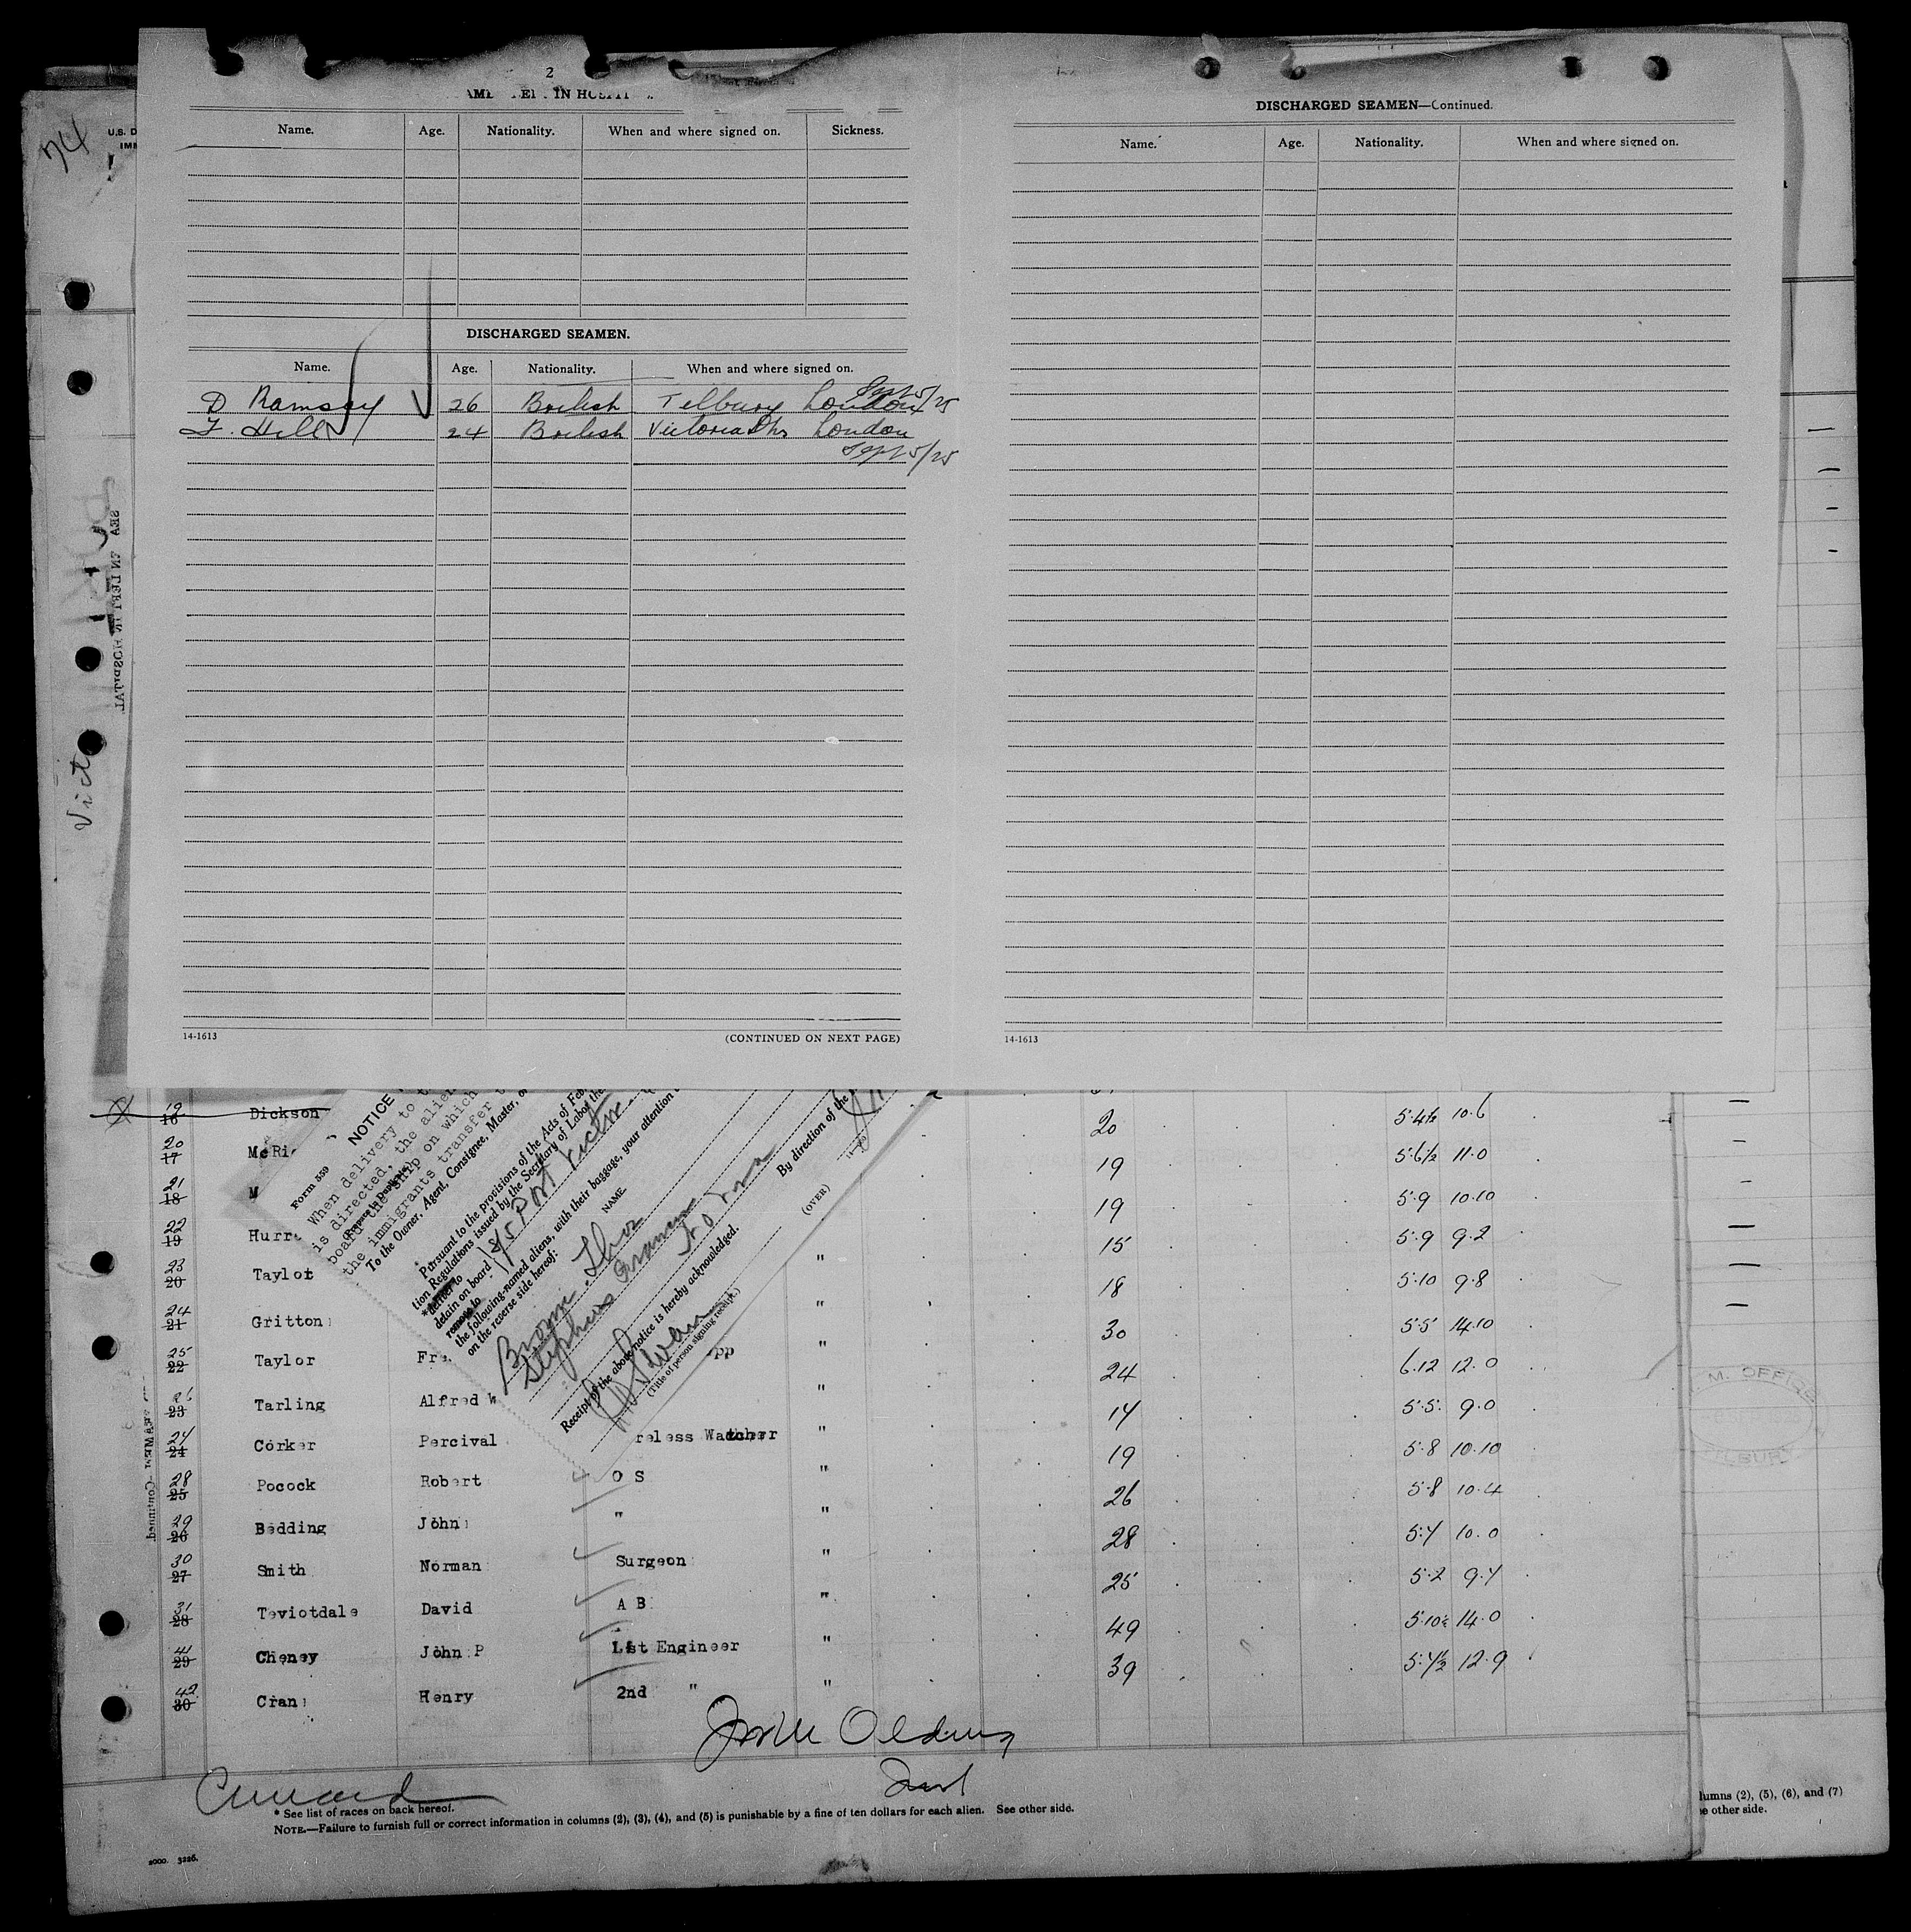 74
U.S. D
IMM
2
IN HOSPIT
Name. Age. Nationality. When and where signed on. Sickness.
DISCHARGED SEAMEN.
Name. Age. Nationality. When and where signed on.
D Ramsay 26 British Tilbury London Sept 5/25
F. Hill 24 British Victoria Dks London
Sept 5/25
14-1613 (CONTINUED ON NEXT PAGE)
DISCHARGED SEAMEN—Continued.
Name. Age. Nationality. When and where signed on.
14-1613
Vict
NOTICE
Form 559
When delivery to
is directed, the alien
board the ship on which
the immigrants transfer
To the Owner, Agent, Consignee, Master, or
Pursuant to the provisions of the Acts of Feb
tion Regulations issued by the Secretary of Labor the
deliver to
detain on board Port Victor
remove to
the following-named aliens, with their baggage, your attention
on the reverse side hereof:
NAME.
Brown Thos
Stephens
By direction of the
Receipt of the above notice is hereby acknowledged.
(Title of person signing receipt.)
(OVER)
19 16 Dickson 20 5·4½ 10.6
20 17 McRi 19 5·6½ 11.0
21 18 M 19 5·9 10.10
22 19 Hurr 15 5·9 9.2
23 20 Taylor " 18 5·10 9.8
24 21 Gritton " 30 5·5 14.10
25 22 Taylor Fre pp " 24 6.12 12.0
26 23 Tarling Alfred W " 17 5·5 9.0
27 24 Corker Percival reless Watcher " 19 5·8 10.10
28 25 Pocock Robert O S " 26 5·8 10.4
29 26 Bedding John " " 28 5·7 10.0
30 27 Smith Norman Surgeon " 25 5·2 9.7
31 28 Teviotdale David A B " 49 5·10½ 14.0
41 29 Cheney John P 1st Engineer " 39 5·7½ 12.9
42 30 Cran Henry 2nd " "
Cunard
* See list of races on back hereof.
NOTE.—Failure to furnish full or correct information in columns (2), (3), (4), and (5) is punishable by a fine of ten dollars for each alien. See other side.
2000. 3226.
lumns (2), (5), (6), and (7)
e other side.
M. OFFICE
ILBURY